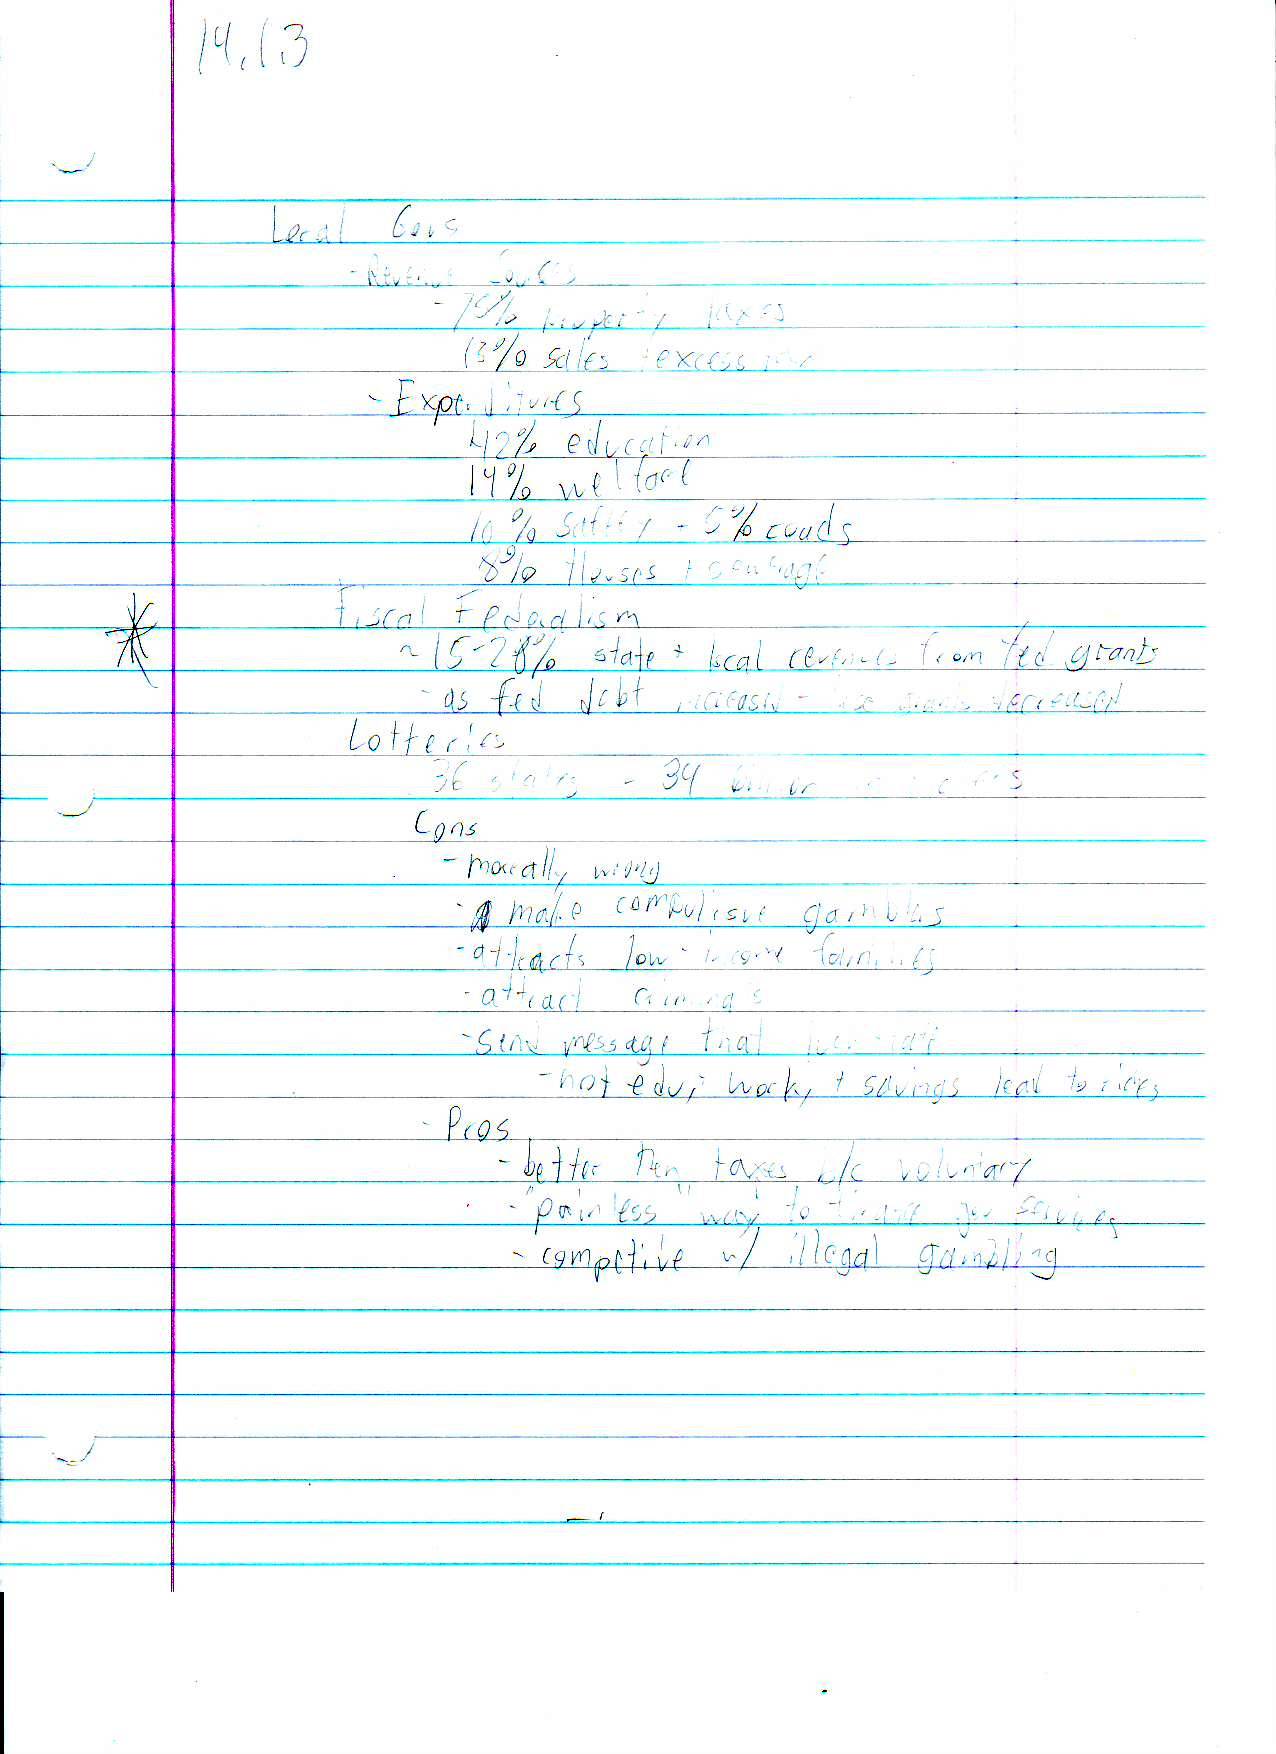 14.1.3
Local Govs
- Revenue Sources
- 75% property taxes
13% sales + excess tax
- Expenditures
42% education
14% welfare
10% saftey - 5% roads
8% Houses + sewage
Fiscal Federalism
~ 15-20% state + local revenues from fed grants
- as fed debt increased - grants decreased
Lotteries
36 states - 34
Cons
- morally wrong
- make
- attracts low-income families
- attract criminals
- send message that luck
- not edu, work, + savings lead to riches
- Pros
- better then taxes b/c voluntary
- "painless" way to finance gov services
- competive w/ illegal gambling